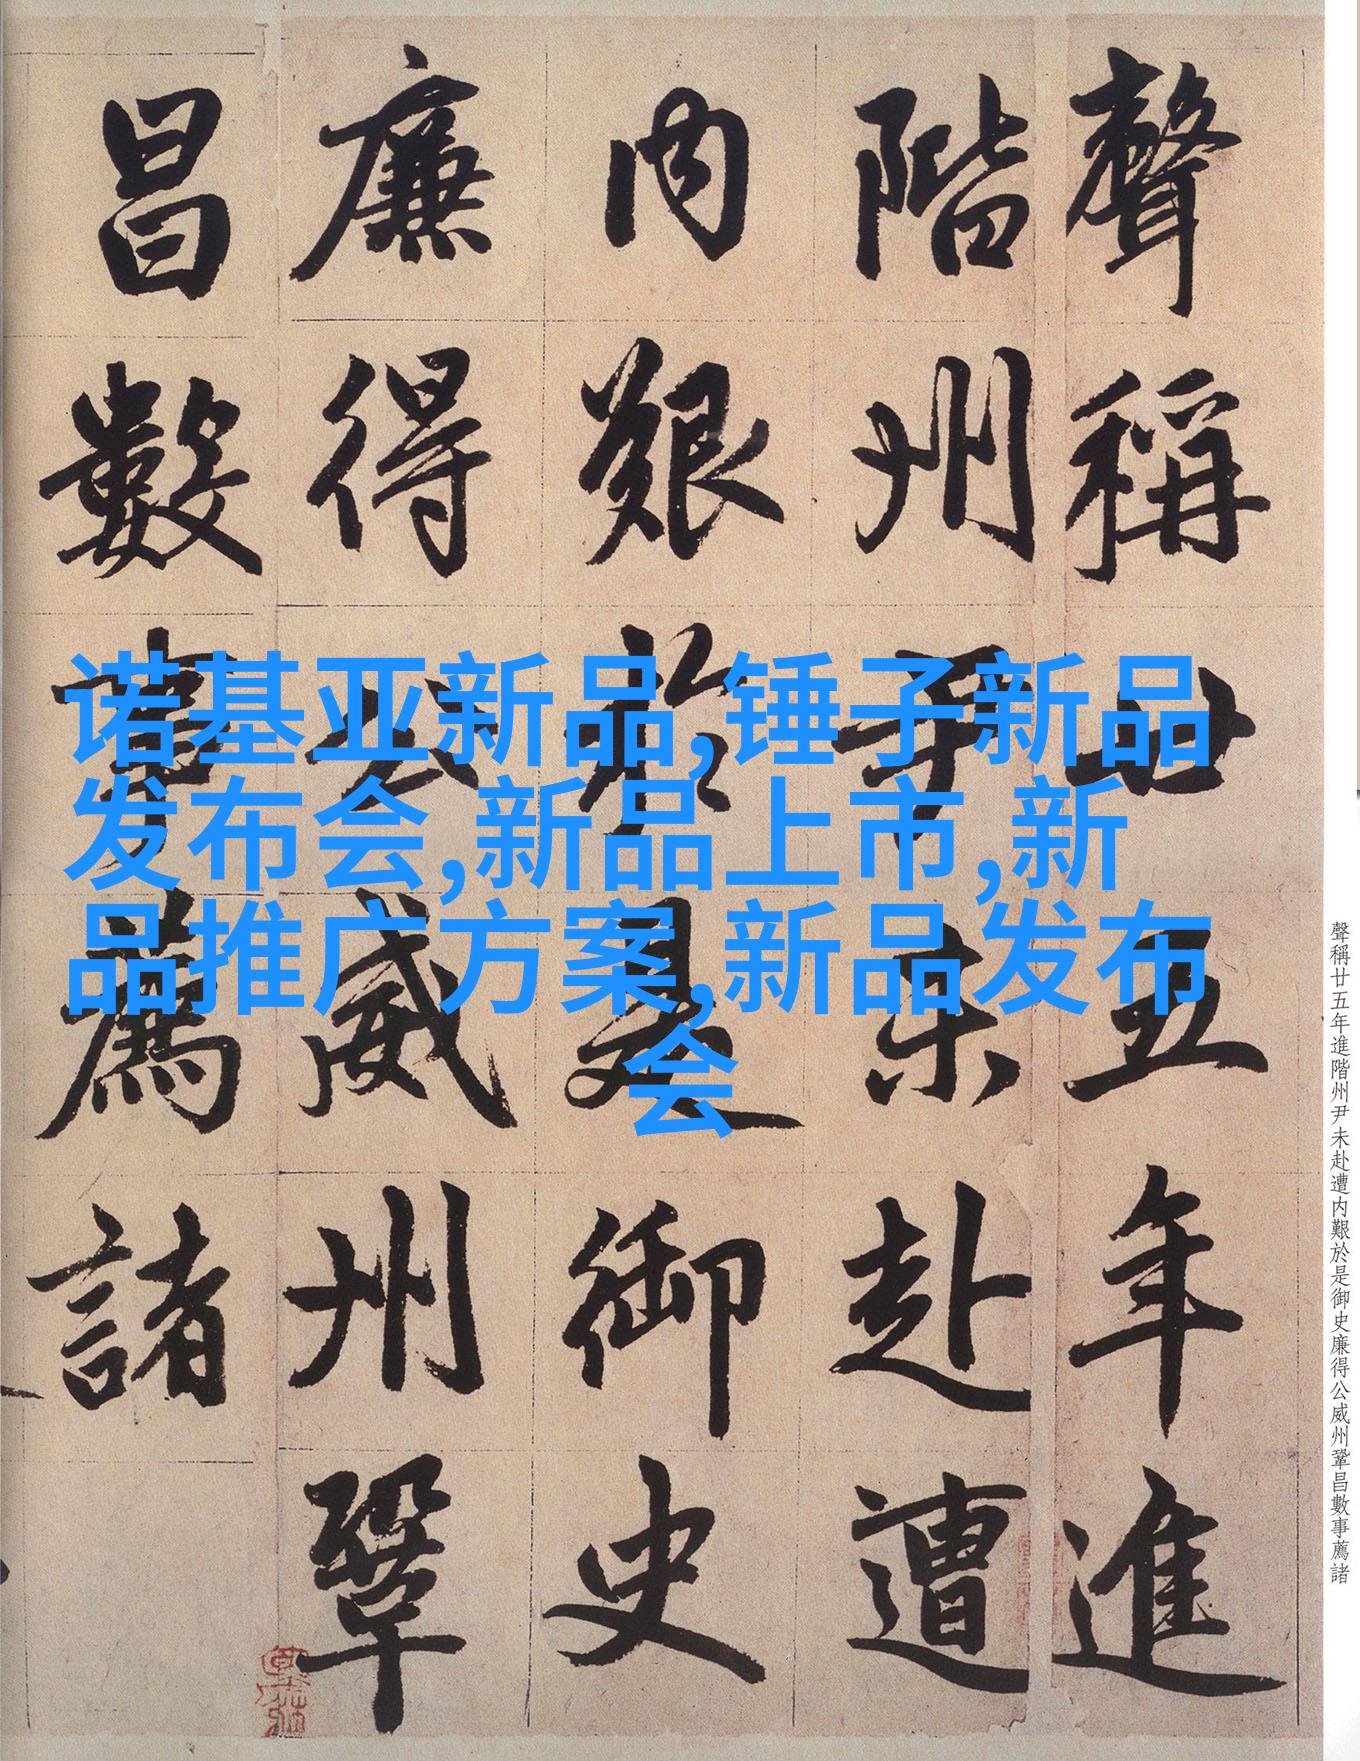 聲稱廿五年進
階州尹未赴遭
内艱於是御史
廉得公威州鞏
昌數事薦諸
诺基亚新品,锤子新品
发布会,新品上市,新
品推广方案,新品发布
会
聲稱廿五年進階州尹未赴遭内艱於是御史廉得公威州鞏昌數事薦諸